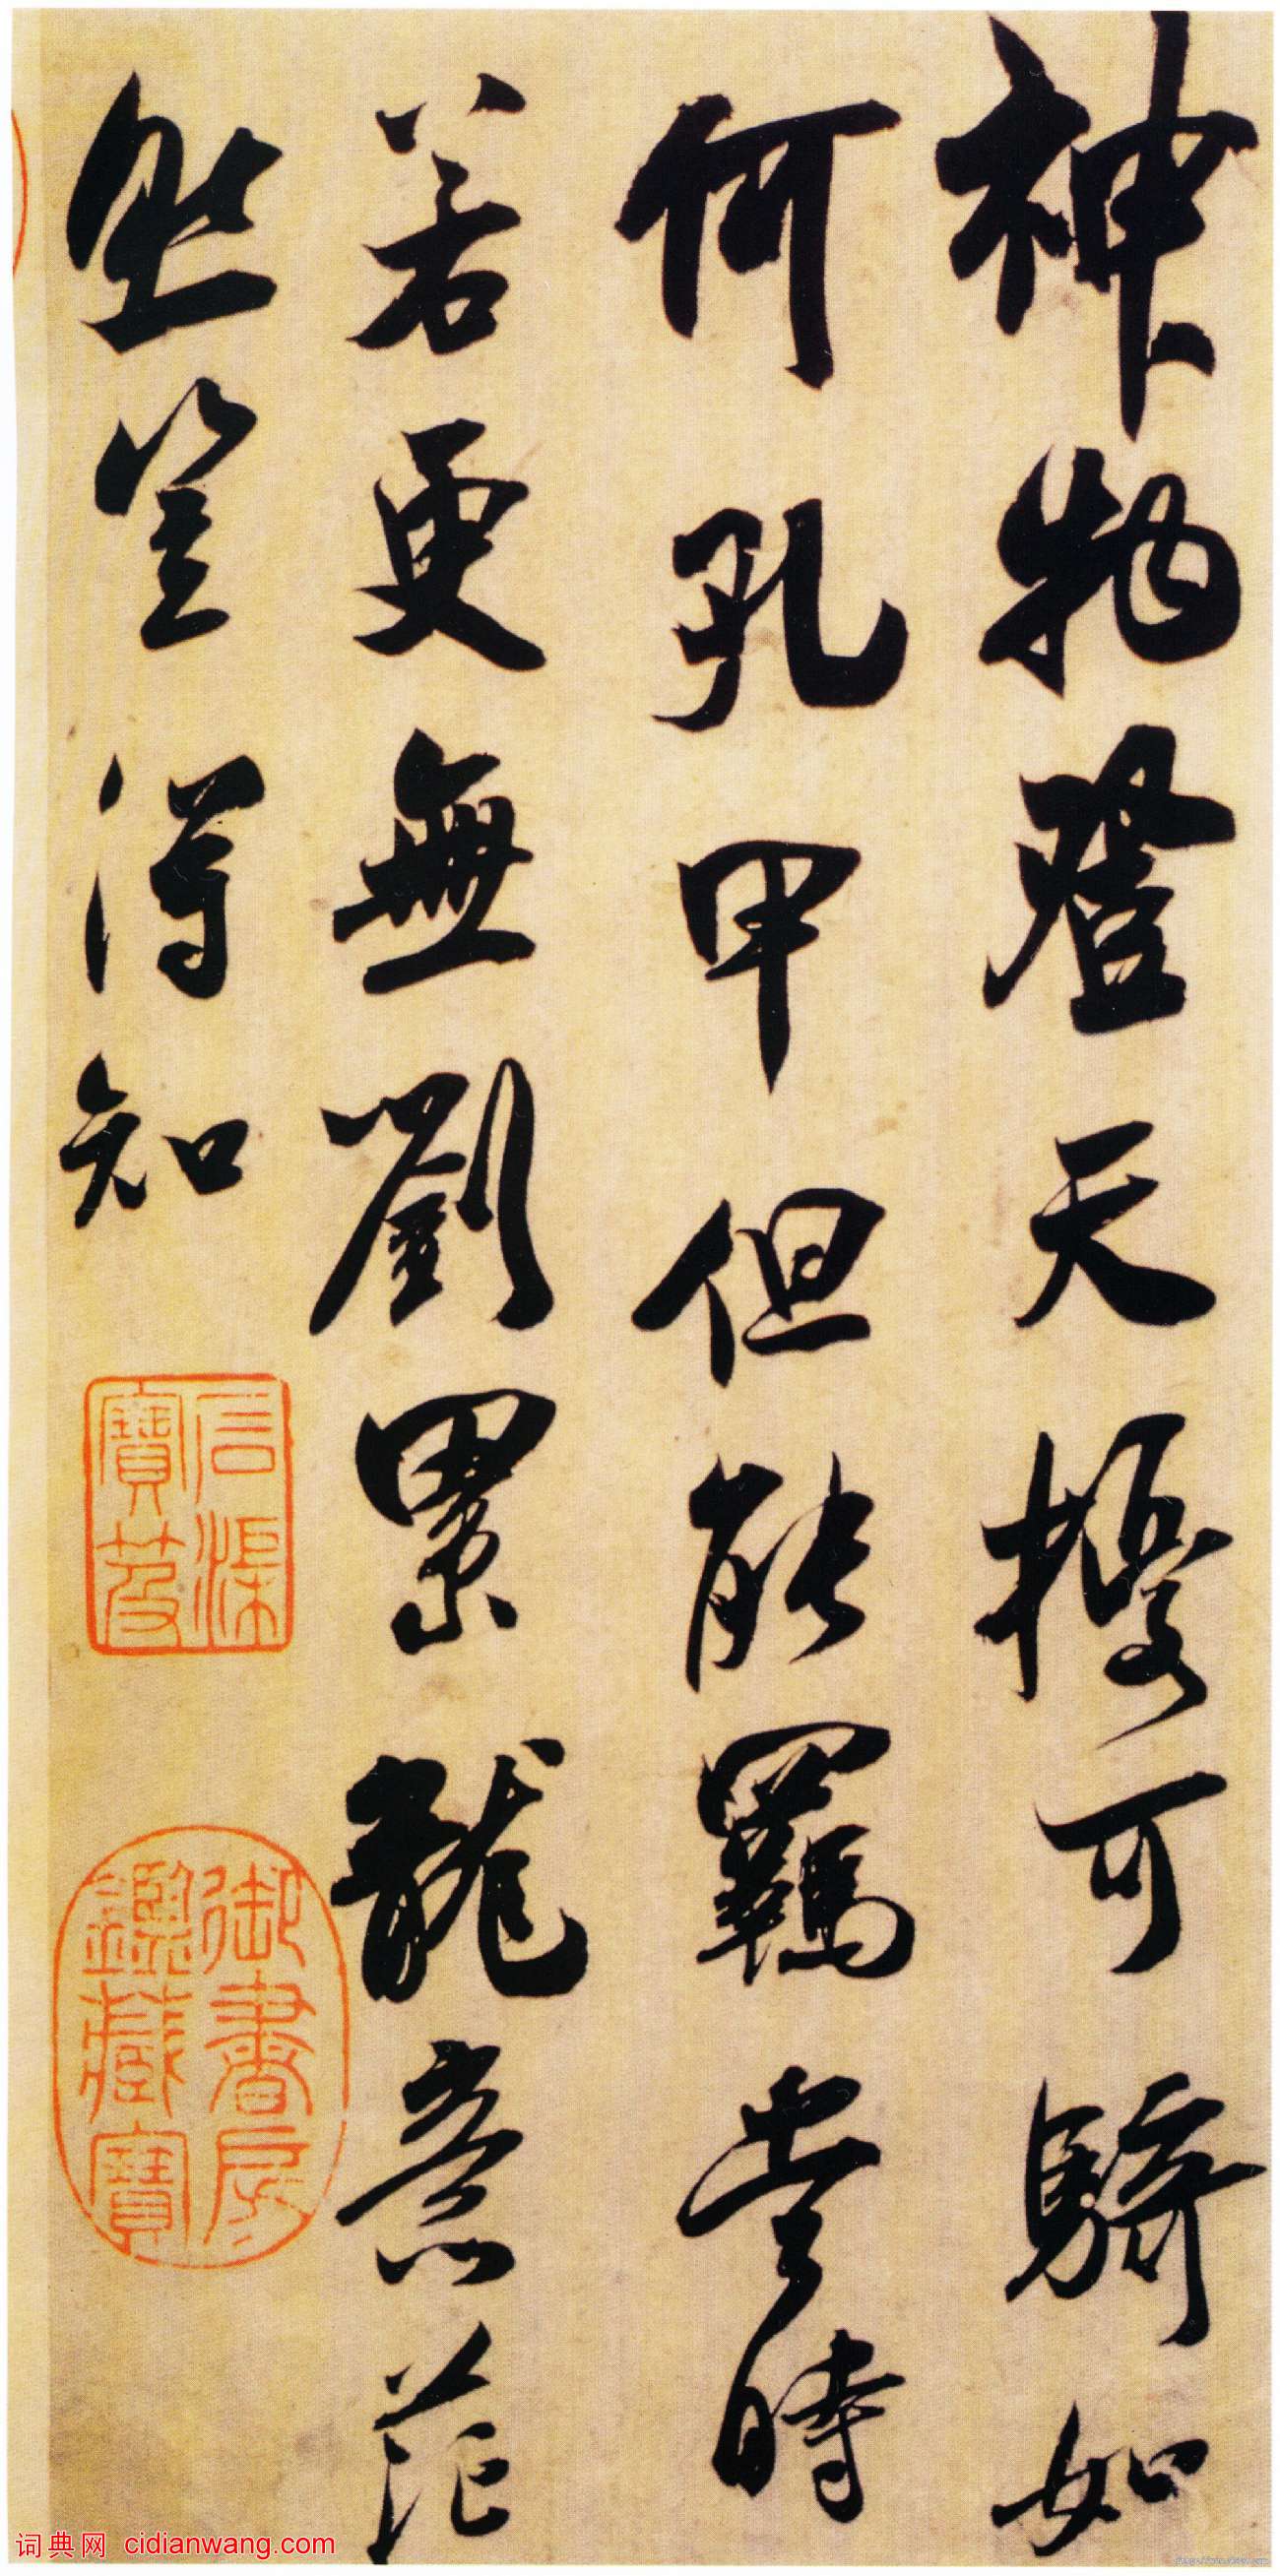 神物登天擾可騎如
何孔甲但能羈當時
若更無劉累龍意茫
然豈得知
石渠
寶笈
御書房
鑑藏寶
词典网 cidianwang.com